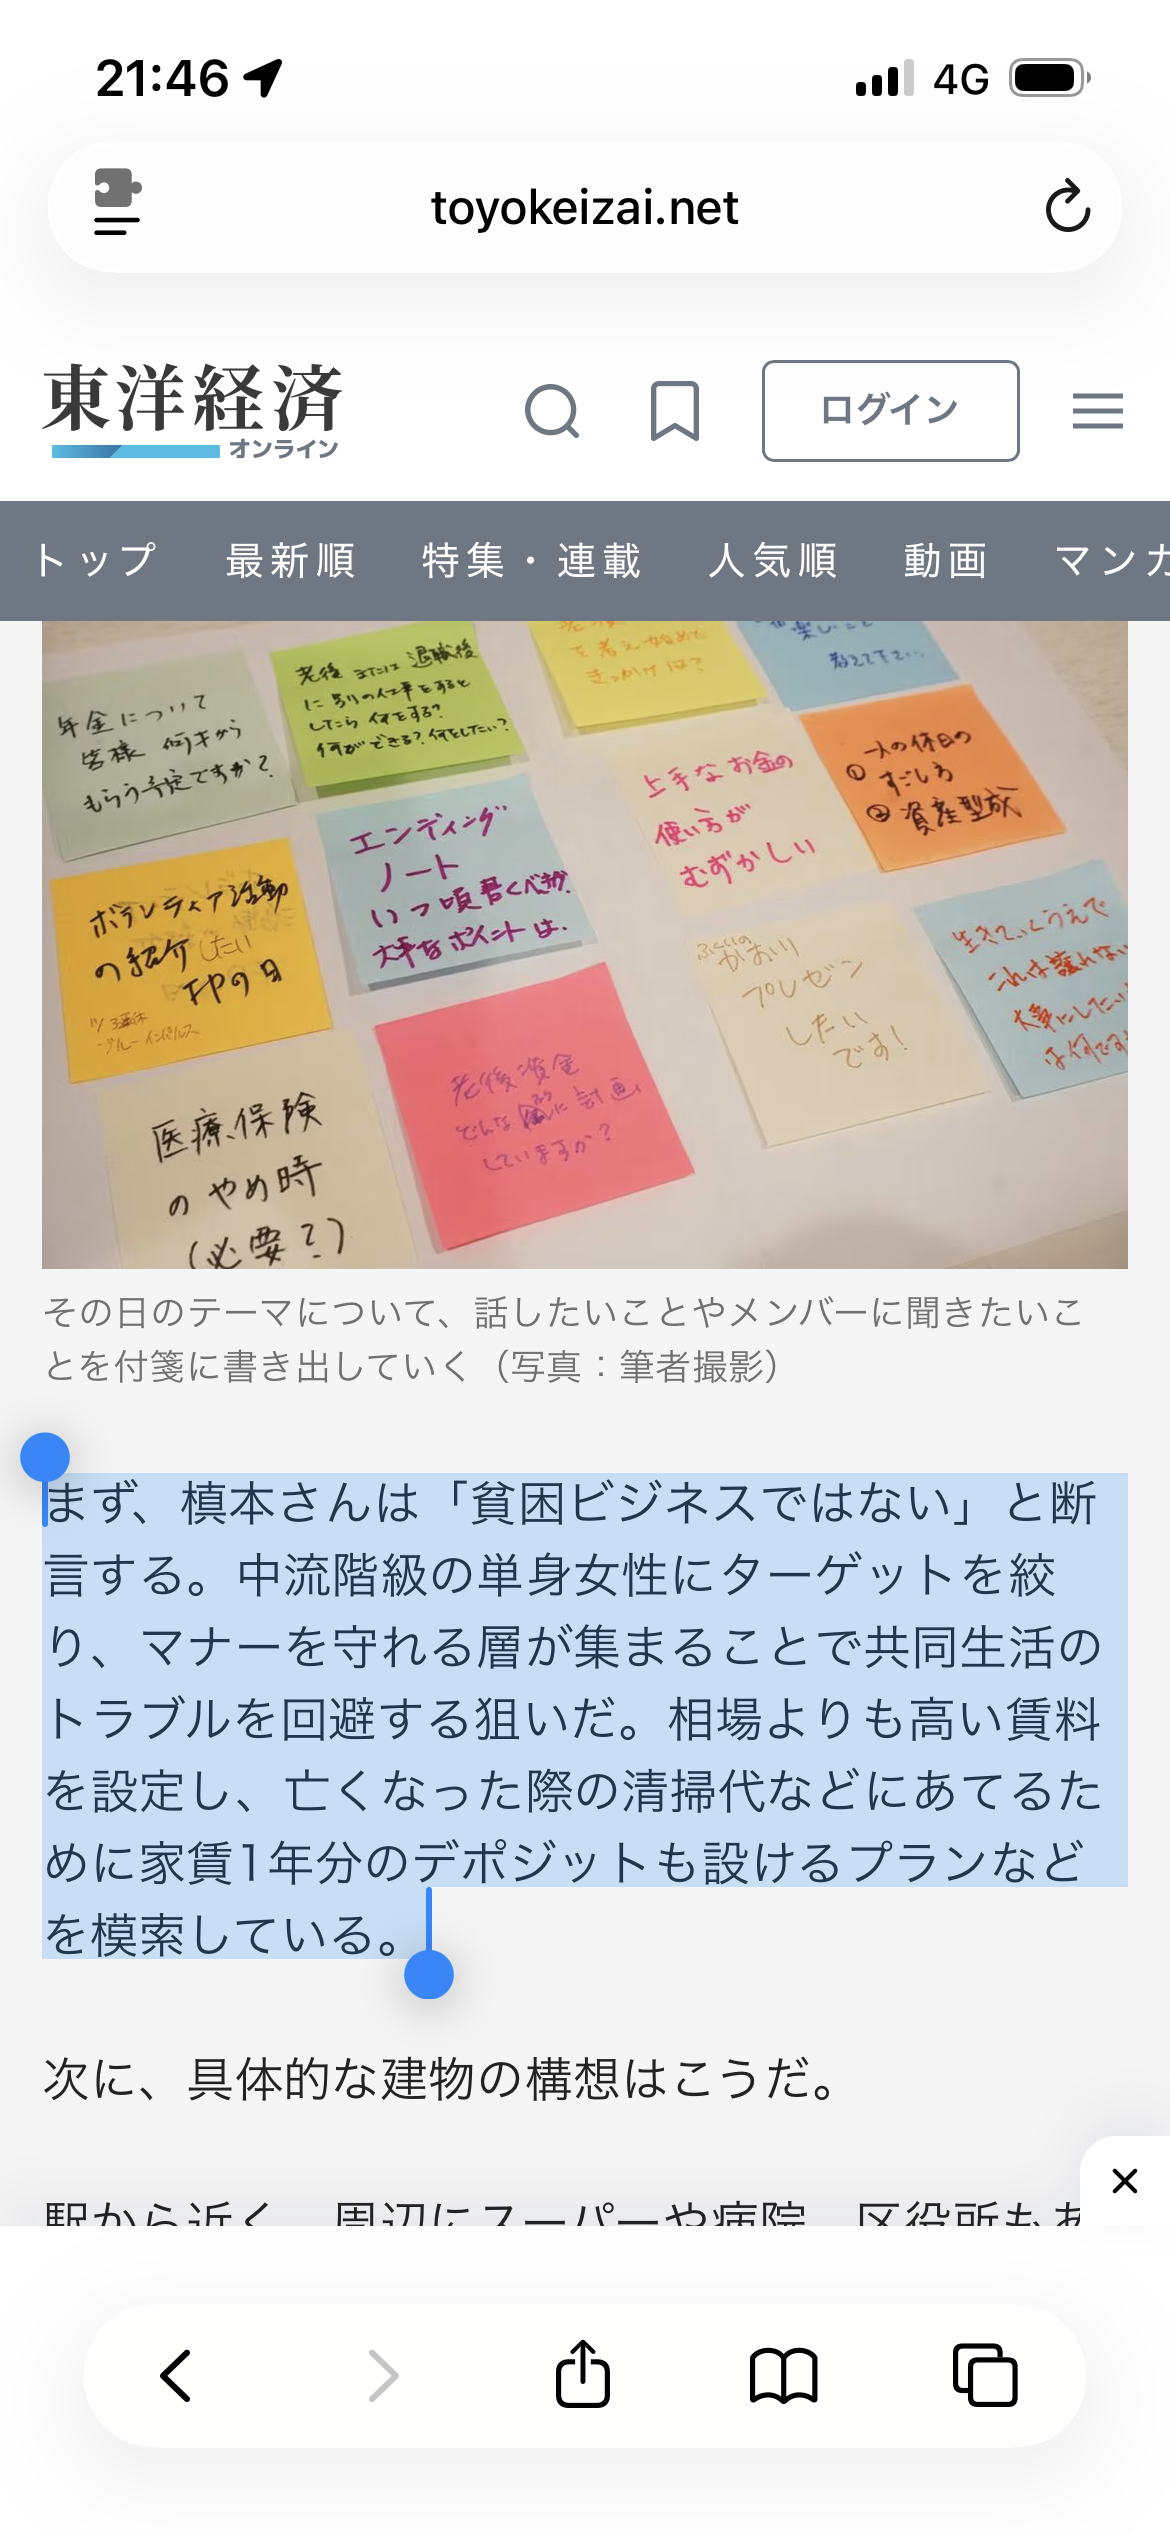 21:46
4G
toyokeizai.net
東洋経済
オンライン
ログイン
トップ 最新順 特集・連載 人気順 動画 マンガ
年金について
皆様 何才から
もらう予定ですか?
老後 または 退職後
に 別の仕事をすると
したら 何をする?
何ができる?何をしたい?
を考え始めた
きっかけは?
楽しいこと
教えて下さい
上手なお金の
使い方が
むずかしい
一人の休日の
① すごし方
② 資産型成
エンディング
ノート
いつ頃書くべきか
大事なポイントは.
ボランティア活動
の紹介したい
FPの日
ブルーインパルス
老後資金
どんな に計画
していますか?
かおり
プレゼン
したい
です!
生きていくうえで
これは譲れない
大事にしたい
は何です
医療保険
のやめ時
(必要?)
その日のテーマについて、話したいことやメンバーに聞きたいこ
とを付箋に書き出していく（写真：筆者撮影）
まず、槙本さんは「貧困ビジネスではない」と断
言する。中流階級の単身女性にターゲットを絞
り、マナーを守れる層が集まることで共同生活の
トラブルを回避する狙いだ。相場よりも高い賃料
を設定し、亡くなった際の清掃代などにあてるた
めに家賃1年分のデポジットも設けるプランなど
を模索している。
次に、具体的な建物の構想はこうだ。
駅から近く、周辺にスーパーや病院、区役所もあ